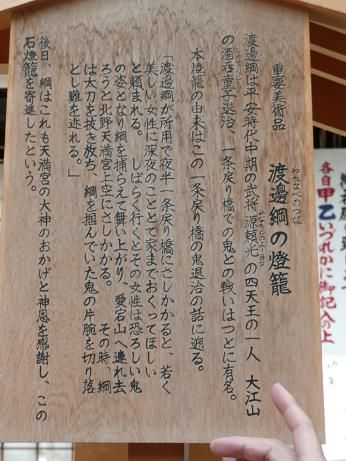 重要美術品
渡邊綱の燈籠
わたなべのつな
渡邊綱は平安時代中期の武将源頼光の四天王の一人　大江山
みなもとのよりみつ
の酒呑童子退治、一条戻り橋での鬼との戦いはつとに有名。
本燈籠の由来はこの一条戻り橋の鬼退治の話に遡る。
「渡邊綱が所用で夜半一条戻り橋にさしかかると、若く
美しい女性に深夜のこととて家までおくってほしい
と頼まれる。　しばらく行くとその女性は恐ろしい鬼
の姿となり綱を捕らえて舞い上がり、愛宕山へ連れ去
ろうと北野天満宮上空にさしかかる。　その時、綱
は太刀を抜き放ち、綱を掴んでいた鬼の片腕を切り落
とし難を逃れる。」
後日、綱はこれも天満宮の大神のおかげと神恩を感謝し、この
石燈籠を寄進したという。
各自甲乙いづれかに御記入の上